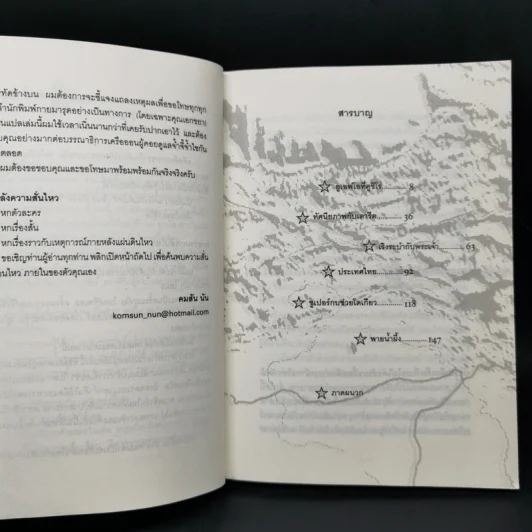 รทัดข้างบน ผมต้องการจะชี้แจงแถลงเหตุผลเพื่อขอโทษทุกทุก
สำนักพิมพ์กายมารุตอย่างเป็นทางการ (โดยเฉพาะคุณเอกชยา)
นแปลเล่มนี้ผมใช้เวลาเนิ่นนานกว่าที่เคยรับปากเอาไว้ และต้อง
บคุณอย่างมากต่อบรรณาธิการเครือออนผู้คอยดูแลจ้ำจี้จ้ำไชกัน
ตลอด
ผมต้องขอขอบคุณและขอโทษมาพร้อมพร้อมกันจริงจริงครับ
ลังความสั่นไหว
หกตัวละคร
หกเรื่องสั้น
หกเรื่องราวกับเหตุการณ์ภายหลังแผ่นดินไหว
ขอเชิญท่านผู้อ่านทุกท่าน พลิกเปิดหน้าถัดไป เพื่อค้นพบความสั่น
ไหว ภายในของตัวคุณเอง
คมสัน นันทจิต
komsun_nun@hotmail.com
สารบาญ
ยูเอฟโอที่คุชิโร..........8
ทัศนียภาพกับเตารีด..........36
เริงระบำกับพระเจ้า..........63
ประเทศไทย..........92
ซูเปอร์กบช่วยโตเกียว..........118
พายน้ำผึ้ง..........147
ภาคผนวก